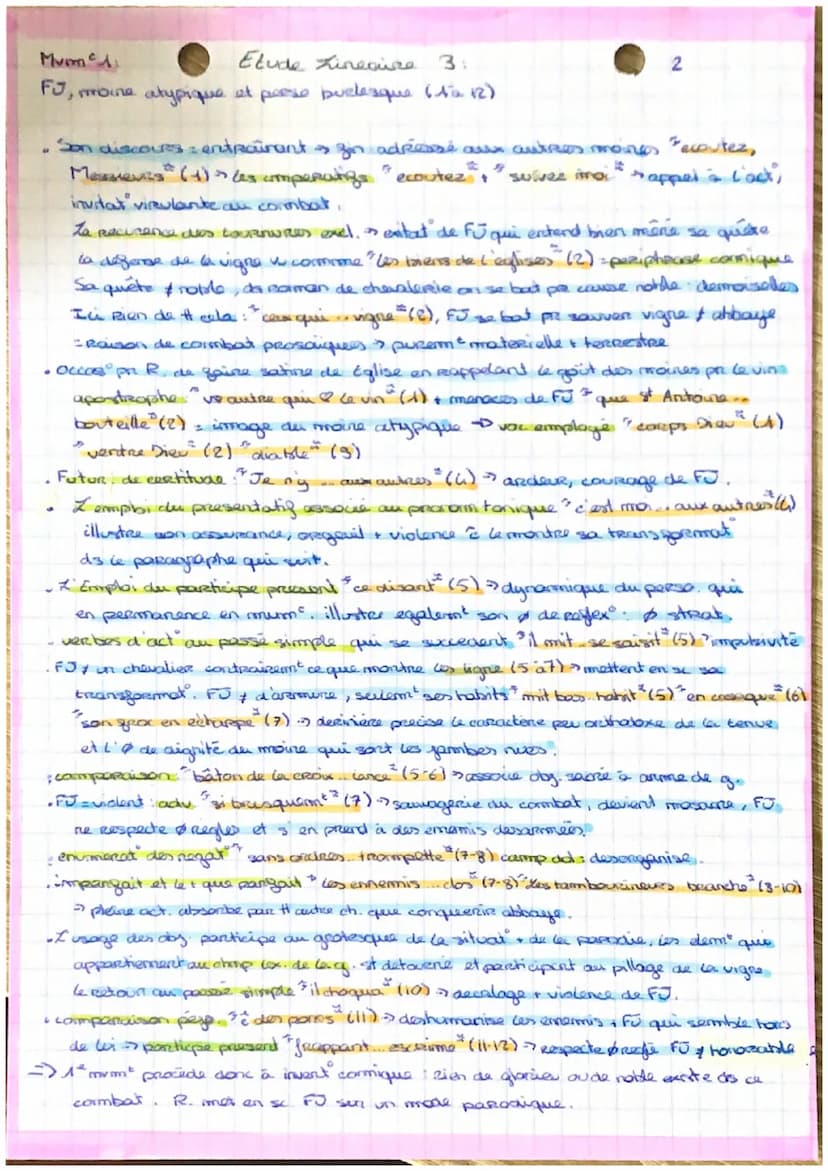 Mvm° 1: Etude Linéaire 3: 2
FJ, moine atypique et perso burlesque (1 à 12)
• Son discours = entraînant → fin adressé aux autres moines "ecoutez,
Messieurs" (1) → les imperatifs "ecoutez", "suivez moi" → appel à l'act°,
invitat° virulante au combat.
La recurence des tournures excl. → exitat° de FJ qui entend bien méné sa quête
la défense de la vigne comme "les biens de l'eglises" (2) = periphrase comique
Sa quête ≠ noble, ds roman de chevalerie on se bat pr cause noble : demoiselles
Ici rien de tt cela : "ceux qui .. vigne" (2), FJ se bat pr sauver vigne ≠ abbaye
= raison de combat prosaïques → purem^t materielle + terrestre
• Occas° pr R. de faire satire de Eglise en rappelant le goût des moines pr le vin =
apostrophe "vs autre qui ♡ le vin" (1) + menaces de FJ "que st Antoine ..
bouteille" (2) = image du moine atypique → voc employé "corps Dieu" (1)
"ventre Dieu" (2) "diable" (3)
• Futur : de certitude : "Je n'y ... aux autres" (4) → ardeur, courage de FJ.
• L'emploi du presentatif associé au pronom tonique "c'est moi .. aux autres" (4)
illustre son assurance, orgueil + violence c̄ le montre sa transformat°
ds le paragraphe qui suit.
• L'Emploi du participe present "ce disant" (5) → dynamique du perso. qui
en permanence en mvm^t. illustre egalem^t son ø de reflex° : ø strat.
• verbes d'act° au passé simple qui se succedent "il mit .. se saisit" (5) → impulsivité
• FJ ≠ un chevalier contrairem^t ce que montre les ligne (5 à 7) → mettent en sc sa
transformat°. FJ ≠ d'armure, seulem^t ses habits "mit bas.. habit" (5) "en casaque" (6)
"son froc en echarpe" (7) → dernière precise le caractère peu orthodoxe de la tenue
et l'ø de dignité du moine qui sort les jambes nues.
• comparaison : "bâton de la croix .. lance" (5-6) → associe obj. sacré à arme de g.
• FJ = violent : adv "si brusquem^t" (7) → sauvagerie du combat, devient massacre, FJ
ne respecte ø regles et s'en prend à des ennemis desarmées.
• enumerat° des negat° "sans ordres.. trompette" (7-8) camp adv : desorganise.
• imparfait et le + que parfait "les ennemis ... clos" (7-8) "Les tambourineurs branche" (8-10)
→ pleine act. absorbé par tt autre ch. que conquerir abbaye.
• L'usage des obj participe au grotesque de la situat° + de la parodie, les elem^t qui
appartiennent au chmp lex. de la g. st detourné et participent au pillage de la vigne
le retour au passé simple "il choqua" (10) → decalage + violence de FJ.
• comparaison pejo. "c̄ des porcs" (11) → deshumanise les ennemis + FJ qui semble hors
de loi → participe present "frappant... escrime" (11-12) → respecte ø regle FJ ≠ honorable
=> 1^e mvm^t procède donc à invent° comique : rien de glorieu ou de noble existe ds ce
combat. R. met en sc FJ sur un mode parodique.